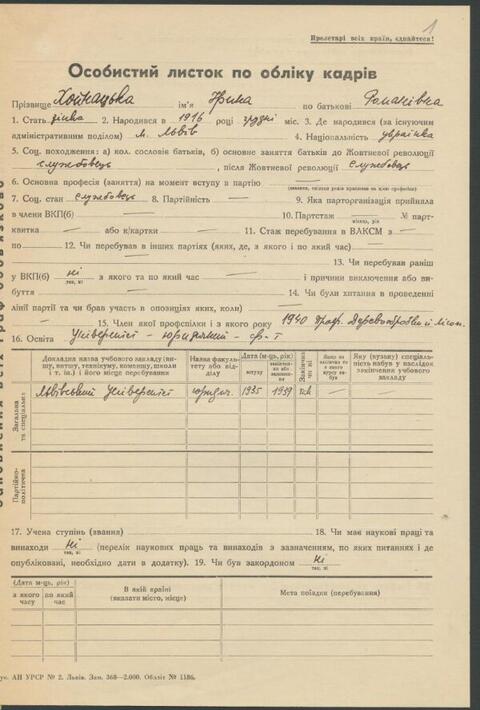 1
Пролетарі всіх країн, єднайтеся!
Особистий листок по обліку кадрів
Прізвище Хойнацька ім'я Ірина по батькові Романівна
1. Стать жінка 2. Народився в 1916 році грудні міс. 3. Де народився (за існуючим
адміністративним поділом) м. Львів 4. Національність українка
5. Соц. походження: а) кол. сословія батьків, б) основне заняття батьків до Жовтневої революції
службовець, після Жовтневої революції службовець
6. Основна професія (заняття) на момент вступу в партію —
7. Соц. стан службовець 8. Партійність — 9. Яка парторганізація прийняла
в члени ВКП(б) — 10. Партстаж — № парт-
місяць, рік
квитка — або к/картки — 11. Стаж перебування в ВЛКСМ з —
по — 12. Чи перебував в інших партіях (яких, де, з якого і по який час) —
13. Чи перебував раніш
у ВКП(б) ні з якого та по який час — і причини виключення або ви-
так, ні
буття — 14. Чи були хитання в проведенні
лінії партії та чи брав участь в опозиціях яких, коли) —
15. Член якої профспілки і з якого року 1940 проф. Деревообробки й лісом.
16. Освіта Університет - юридичний ф-т
Докладна назва учбового закладу (ви-
шу, втишу, технікуму, комвишу, школи
і т. ін.) і його місце перебування)
Назва факуль-
тету або від-
ділу
Дата (м-ць, рік)
вступу
закінчен-
ня або залишен-
ня
Закінчив
чи ні
Якщо не
закінчив то
з якого
курсу ви-
був
Яку (вузьку) спеціаль-
ність набув в наслідок
закінчення учбового
закладу
Загальна
та спеціальна
Львівський Університет юридич. 1935 1939 так — —
Партійно-
політична
17. Учена ступінь (звання) — 18. Чи має наукові праці та
винаходи ні (перелік наукових праць та винаходів з зазначенням, по яких питаннях і де
так, ні
опубліковані, необхідно дати в додатку). 19. Чи був закордоном ні
так, ні
(Дата м-ць, рік)
з якого
часу
по який
час
В якій країні
(вказати місто, місце)
Мета поїздки (перебування)
ук. АН УРСР № 2. Львів. Зам. 368—2.000. Обліт № 1186.